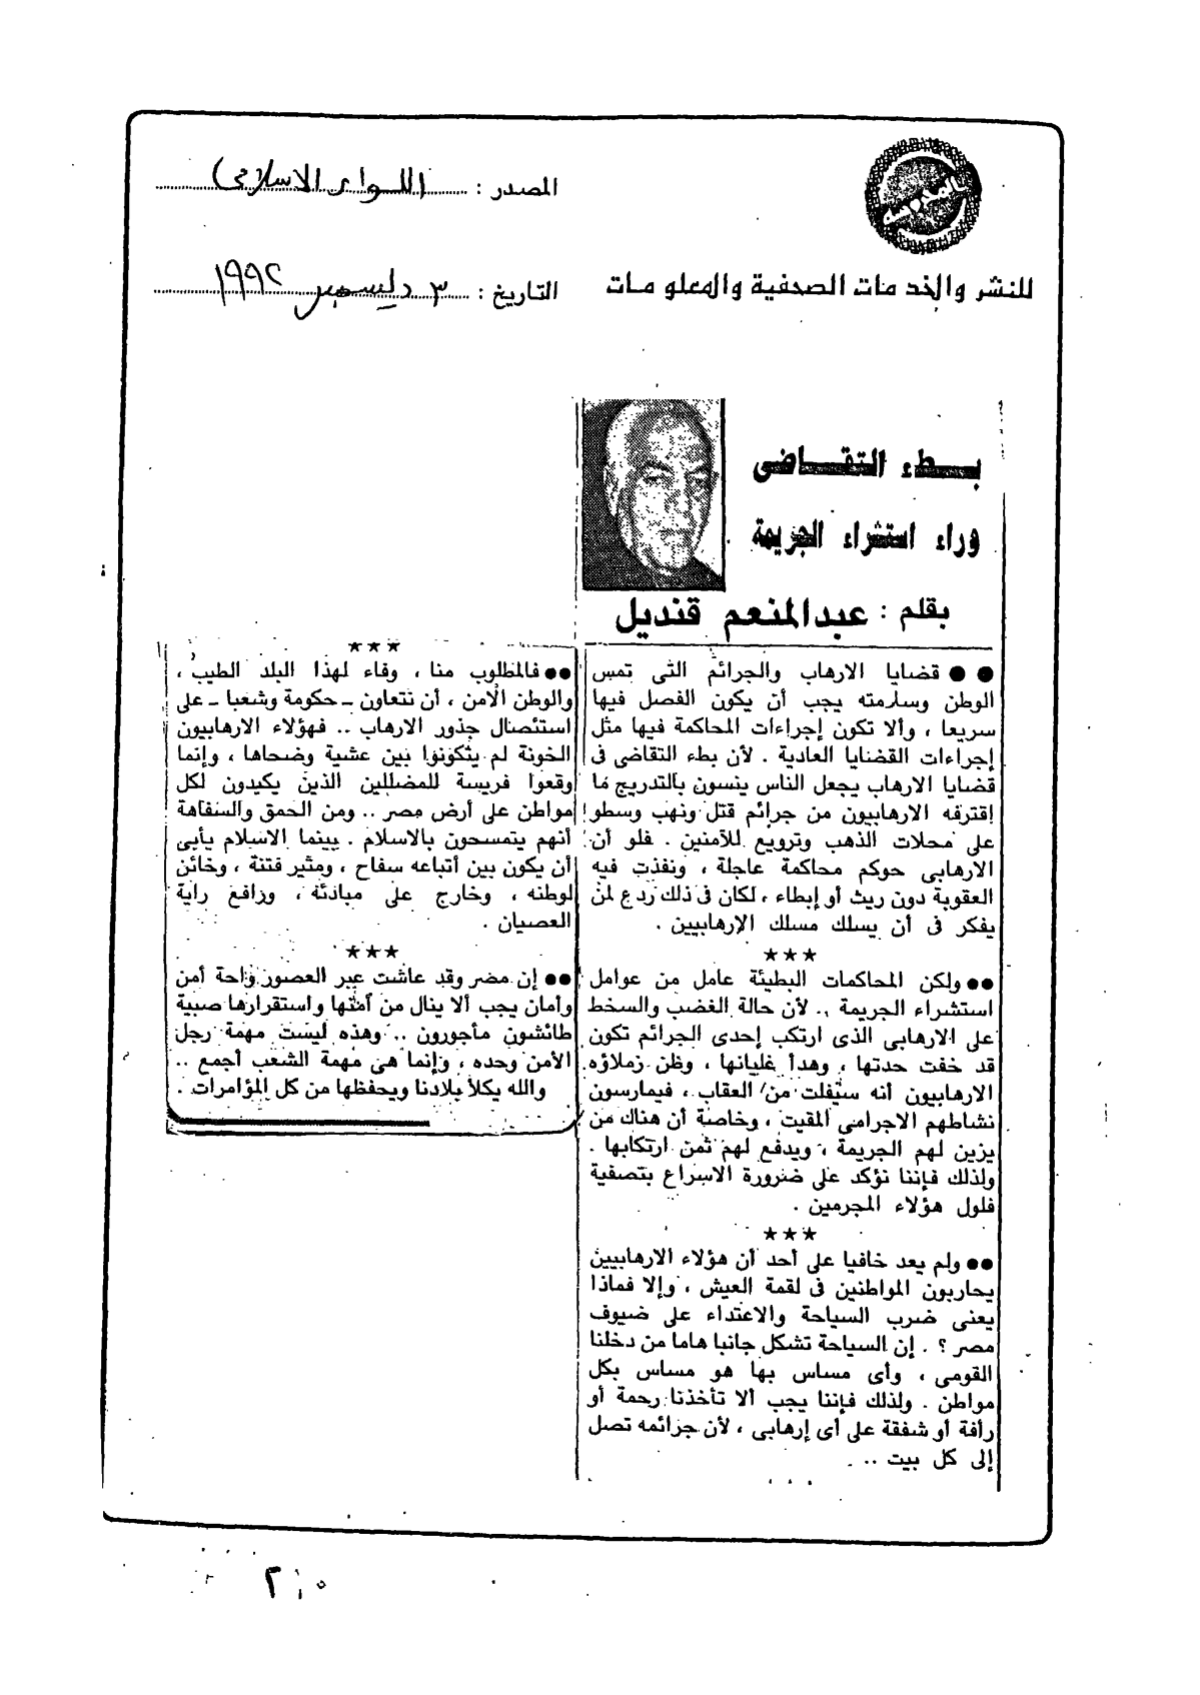 المصدر : اللواء الاسلامى
للنشر والخدمات الصحفية والمعلومات
التاريخ : ٣ ديسمبر ١٩٩٢
بطء التقاضى
وراء استشراء الجريمة
بقلم : عبدالمنعم قنديل
●● قضايا الارهاب والجرائم التى تمس
الوطن وسلامته يجب أن يكون الفصل فيها
سريعا ، وألا تكون إجراءات المحاكمة فيها مثل
إجراءات القضايا العادية . لأن بطء التقاضى فى
قضايا الارهاب يجعل الناس ينسون بالتدريج ما
إقترفه الارهابيون من جرائم قتل ونهب وسطو
على محلات الذهب وترويع للآمنين . فلو أن
الارهابى حوكم محاكمة عاجلة ، ونفذت فيه
العقوبة دون ريث أو إبطاء ، لكان فى ذلك ردع لمن
يفكر فى أن يسلك مسلك الإرهابيين .
★★★
●● ولكن المحاكمات البطيئة عامل من عوامل
استشراء الجريمة .. لأن حالة الغضب والسخط
على الارهابى الذى ارتكب إحدى الجرائم تكون
قد خفت حدتها ، وهدأ غليانها ، وظن زملاؤه
الارهابيون أنه سيفلت من العقاب ، فيمارسون
نشاطهم الاجرامى المقيت ، وخاصة أن هناك من
يزين لهم الجريمة ، ويدفع لهم ثمن ارتكابها .
ولذلك فإننا نؤكد على ضرورة الاسراع بتصفية
فلول هؤلاء المجرمين .
★★★
●● ولم يعد خافيا على أحد أن هؤلاء الارهابيين
يحاربون المواطنين فى لقمة العيش ، وإلا فماذا
يعنى ضرب السياحة والاعتداء على ضيوف
مصر ؟ . إن السياحة تشكل جانبا هاما من دخلنا
القومى ، وأى مساس بها هو مساس بكل
مواطن . ولذلك فإننا يجب ألا تأخذنا رحمة أو
رأفة أو شفقة على أى إرهابى ، لأن جرائمه تصل
إلى كل بيت ..
★★★
●● فالمطلوب منا ، وفاء لهذا البلد الطيب ،
والوطن الآمن ، أن نتعاون ـ حكومة وشعبا ـ على
استئصال جذور الارهاب .. فهؤلاء الارهابيون
الخونة لم يتكونوا بين عشية وضحاها ، وإنما
وقعوا فريسة للمضللين الذين يكيدون لكل
مواطن على أرض مصر .. ومن الحمق والسفاهة
أنهم يتمسحون بالاسلام . بينما الاسلام يأبى
أن يكون بين أتباعه سفاح ، ومثير فتنة ، وخائن
لوطنه ، وخارج على مبادئه ، ورافع راية
العصيان .
★★★
●● إن مصر وقد عاشت عبر العصور واحة أمن
وأمان يجب ألا ينال من أمنها واستقرارها صبية
طائشون مأجورون .. وهذه ليست مهمة رجل
الأمن وحده ، وإنما هى مهمة الشعب أجمع ..
والله يكلأ بلادنا ويحفظها من كل المؤامرات .